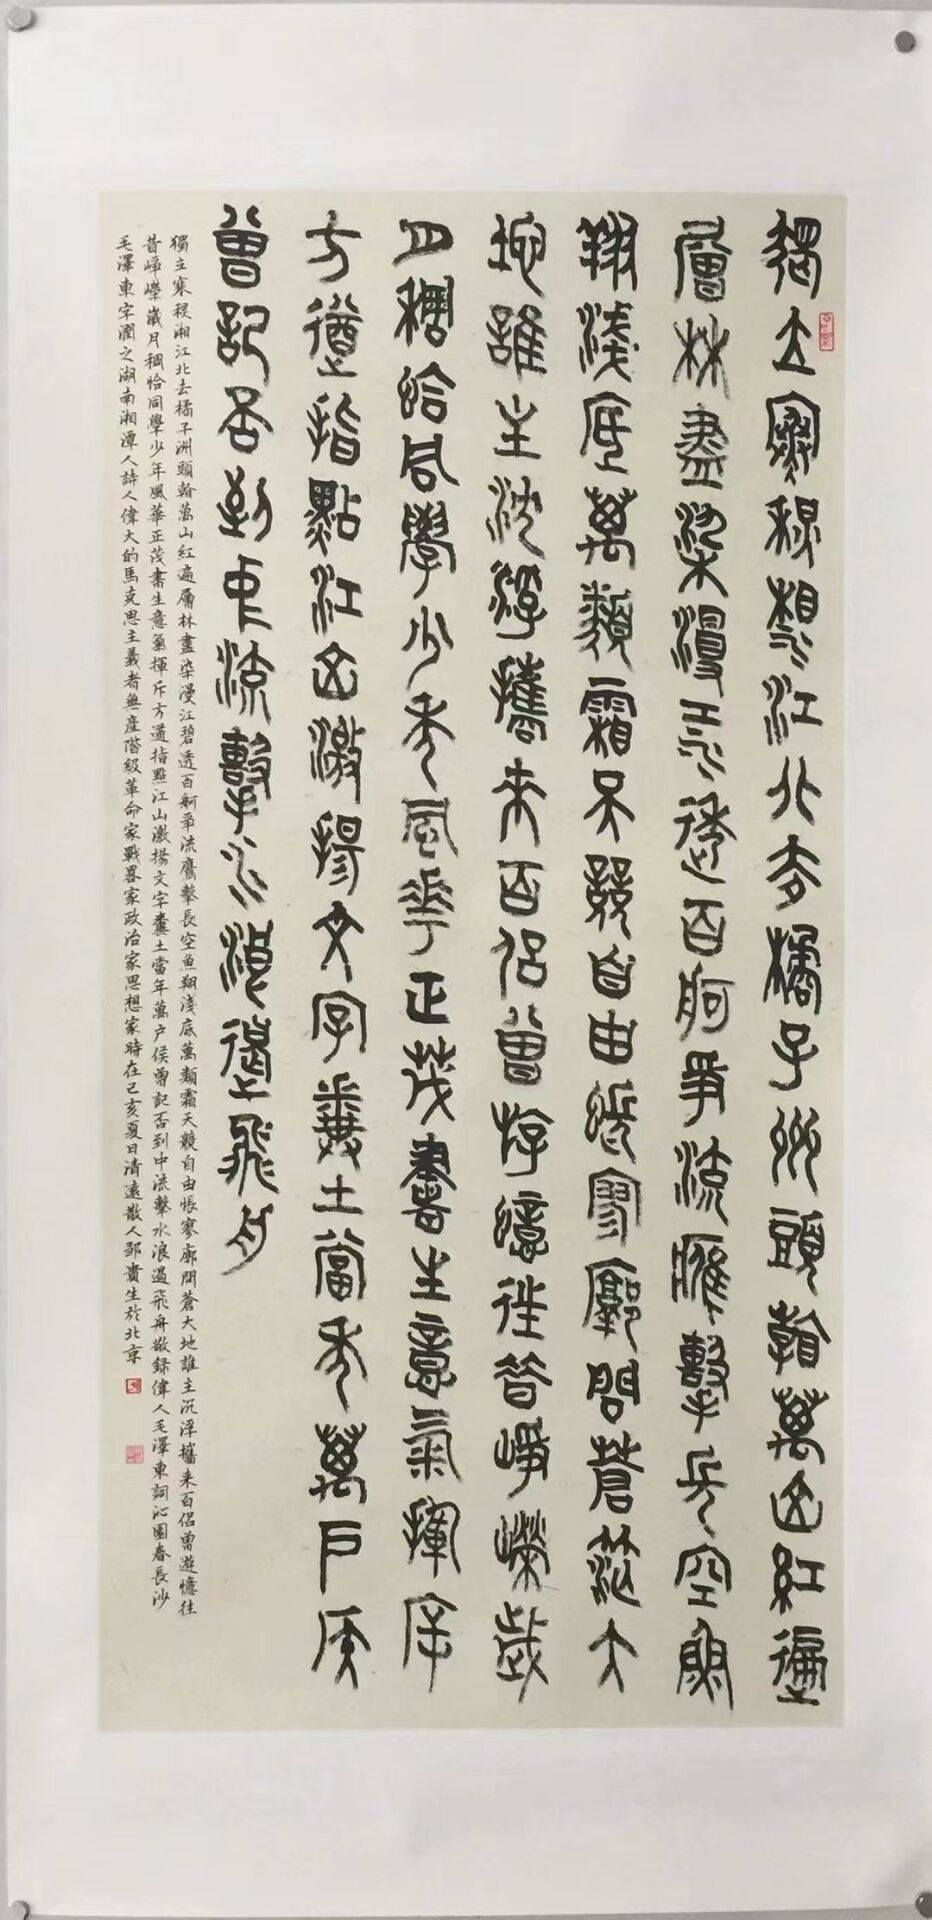 獨立寒秋湘江北去橘子州頭翰萬山紅遍
層林盡染漫江透百舸爭流鷹擊長空魚
翔淺底萬類霜天競自由悵寥廓問蒼茫大
地誰主沈浮攜來百侶曾游憶往昔崢嶸歲
月稠恰同學少年風華正茂書生意氣揮斥
方遒指點江山激揚文字糞土當年萬戶侯
曾記否到中流擊水浪遏飛舟
獨立寒秋湘江北去橘子洲頭翰萬山紅遍層林盡染漫江碧透百舸爭流鷹擊長空魚翔淺底萬類霜天競自由悵寥廓問蒼大地誰主沉浮攜来百侶曾遊憶往
昔崢嶸歲月稠恰同學少年風華正茂書生意氣揮斥方遒指點江山激揚文字糞土當年萬户侯曾記否到中流擊水浪遏飛舟敬錄偉人毛澤東詞沁園春長沙
毛澤東字潤之湖南湘潭人詩人偉大的馬克思主義者無產階級革命家戰畧家政治家思想家時在己亥夏日清遠散人邹貴生於北京